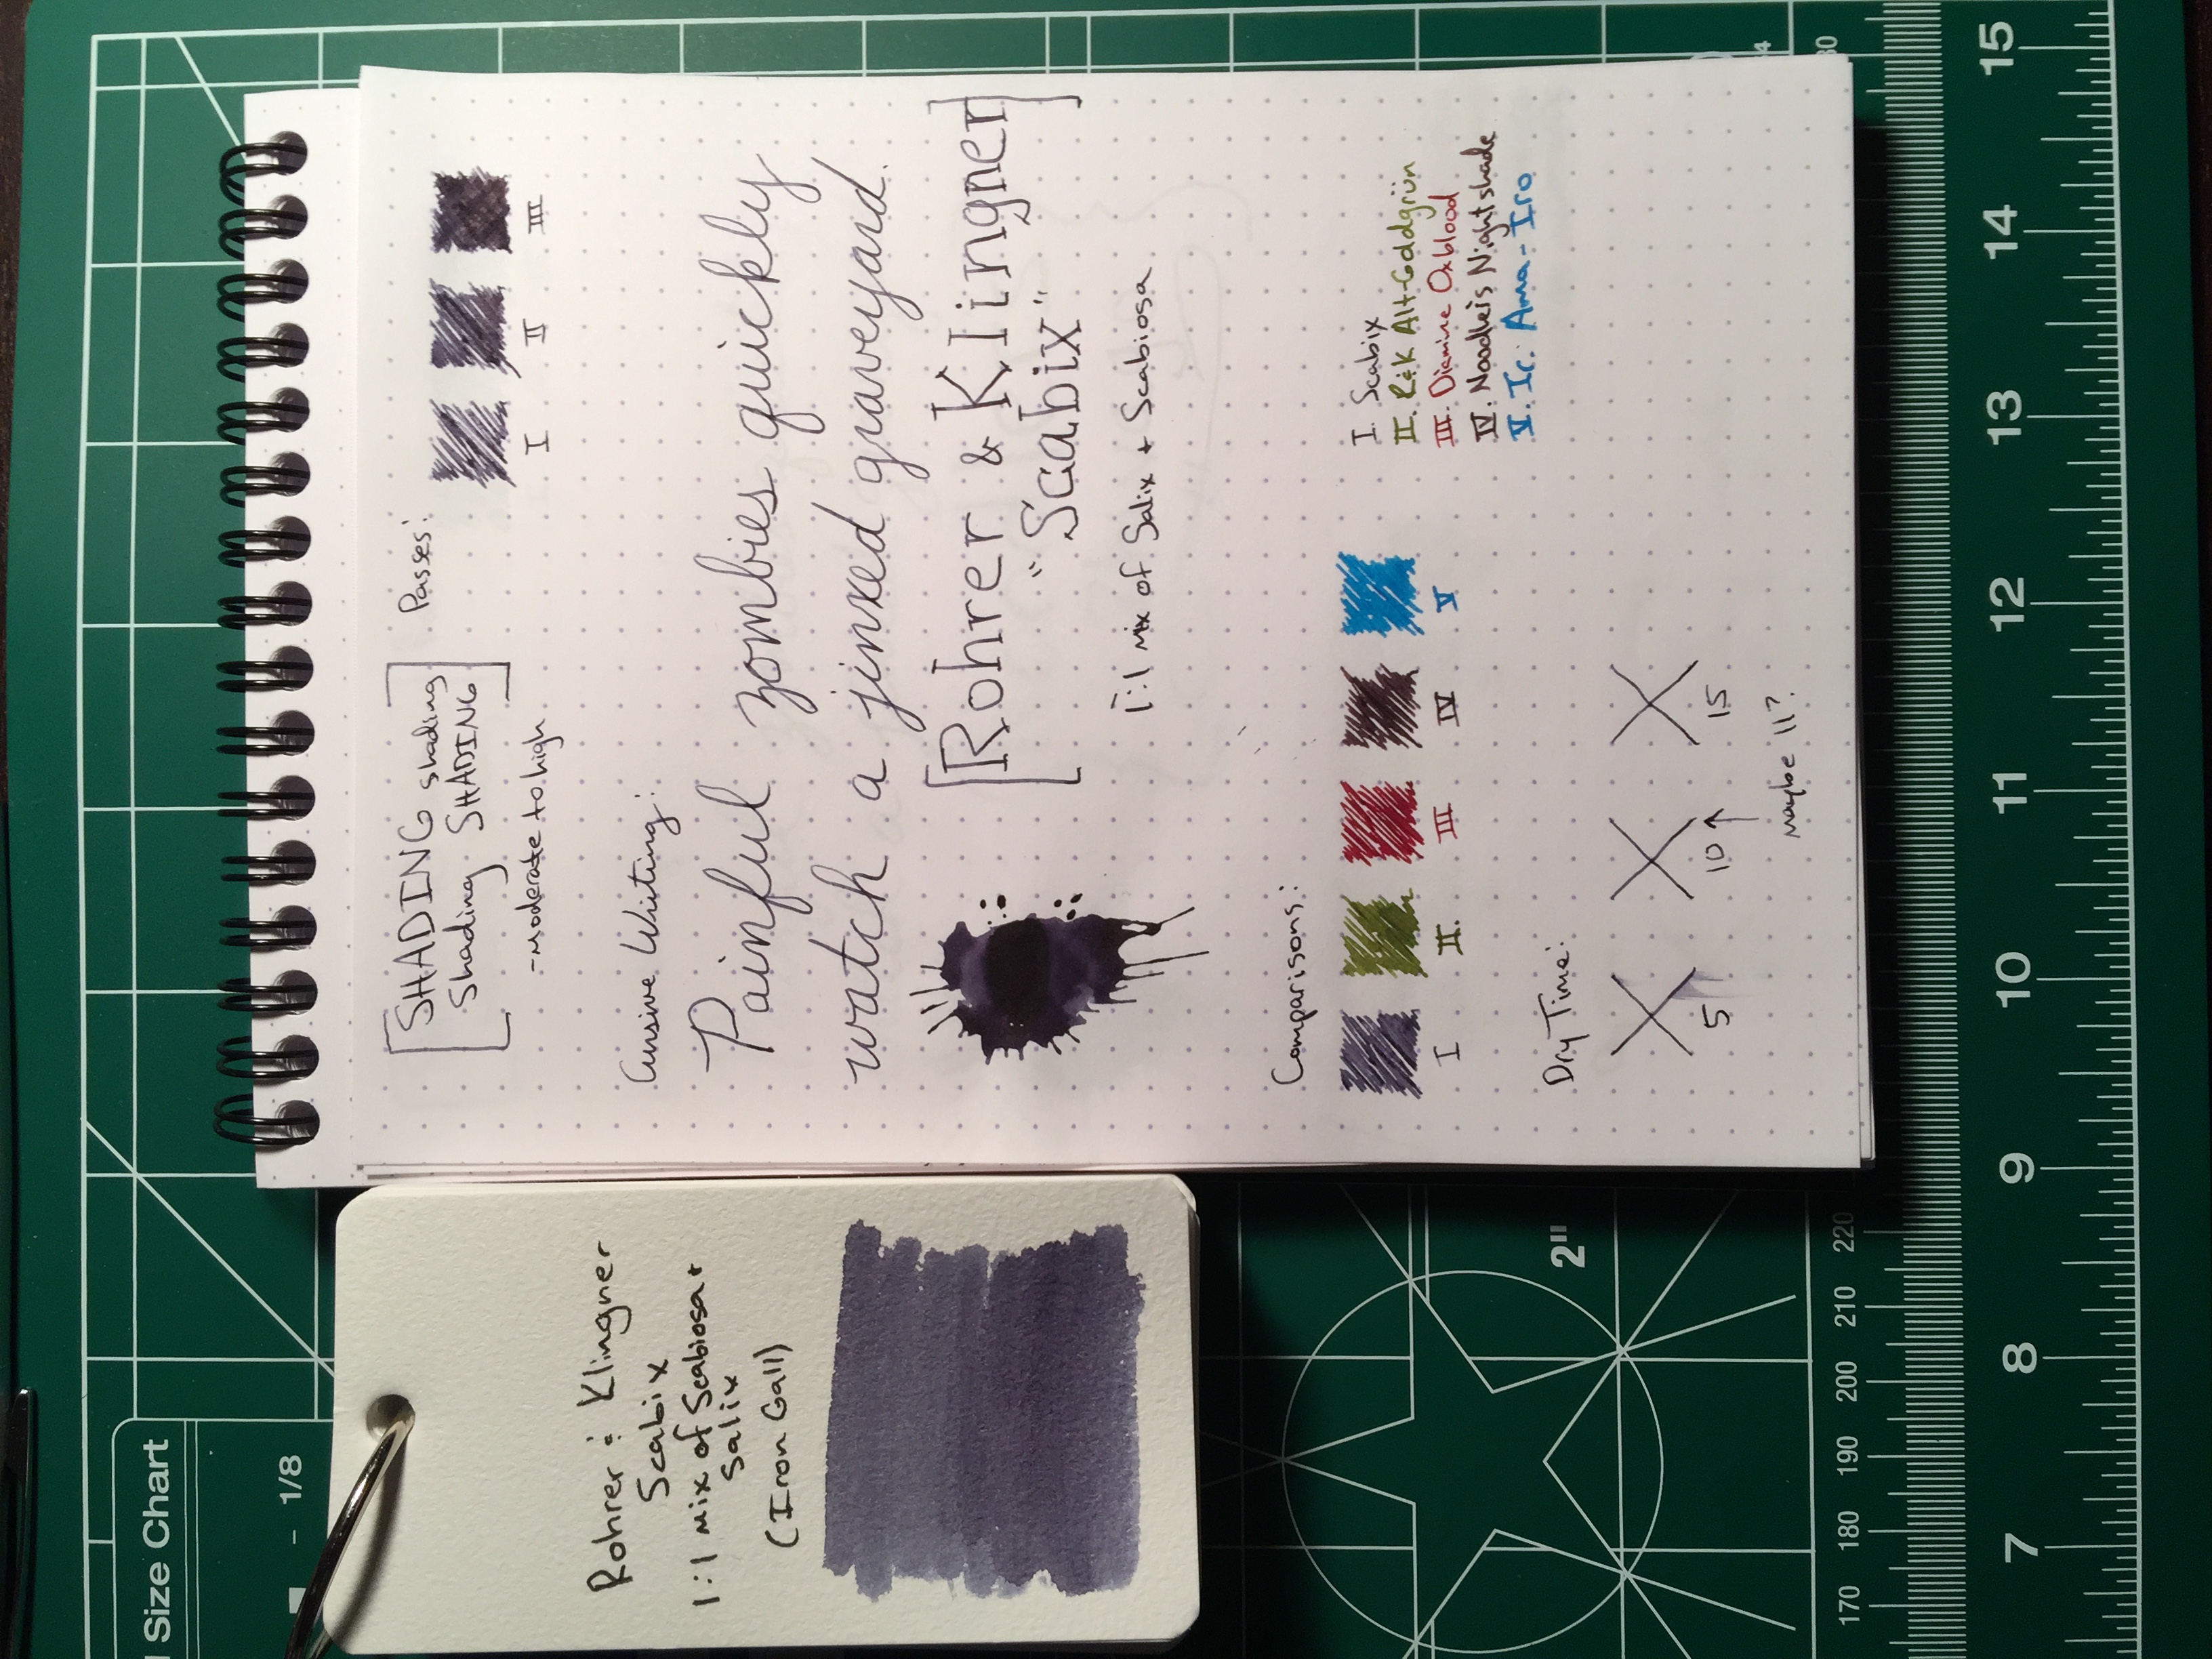 [SHADING shading
Shading SHADING]
-moderate to high
Passes:
I II III
Cursive Writing:
Painful zombies quickly
watch a jinxed graveyard.
[Rohrer & Klingner]
"Scabix"
1:1 mix of Salix + Scabiosa
Comparisons:
I II. III IV V
I. Scabix
II. R&K Alt-Goldgrün
III. Diamine Oxblood
IV. Noodler's Nightshade
V. Ir. Ama-Iro
Dry Time:
5 10 15
Maybe 11?
Rohrer & Klingner
Scabix
1:1 mix of Scabiosa +
Salix
(Iron Gall)
Size Chart
1/8
2"
170 180 190 200 210 220
7 8 9 10 11 12 13 14 15